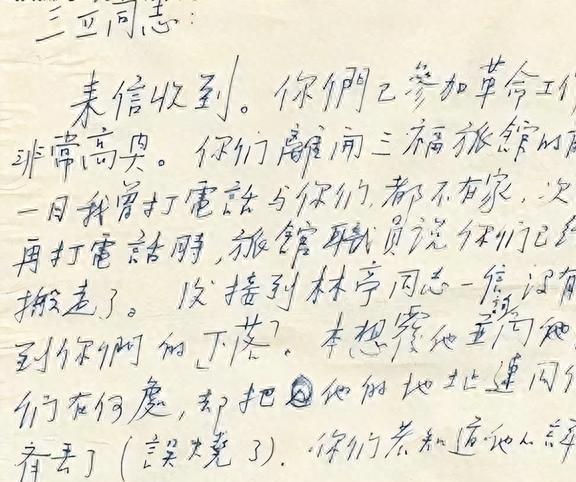 三立同志:
来信收到。你們已參加革命工作
非常高兴。你们離開三福旅館的前
一日我曾打電話与你们,都不在家,次
再打電話時,旅館職員说你们已經
搬走了。 後接到林亭同志一信,没有
到你們的下落。本想覆他並问他
们在何處,却把他的地址連同信
齐丢了(誤燒了)。你们若知道他